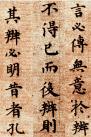 言必傳無意於辯
不得已而後辯則
其辯必明昔者孔